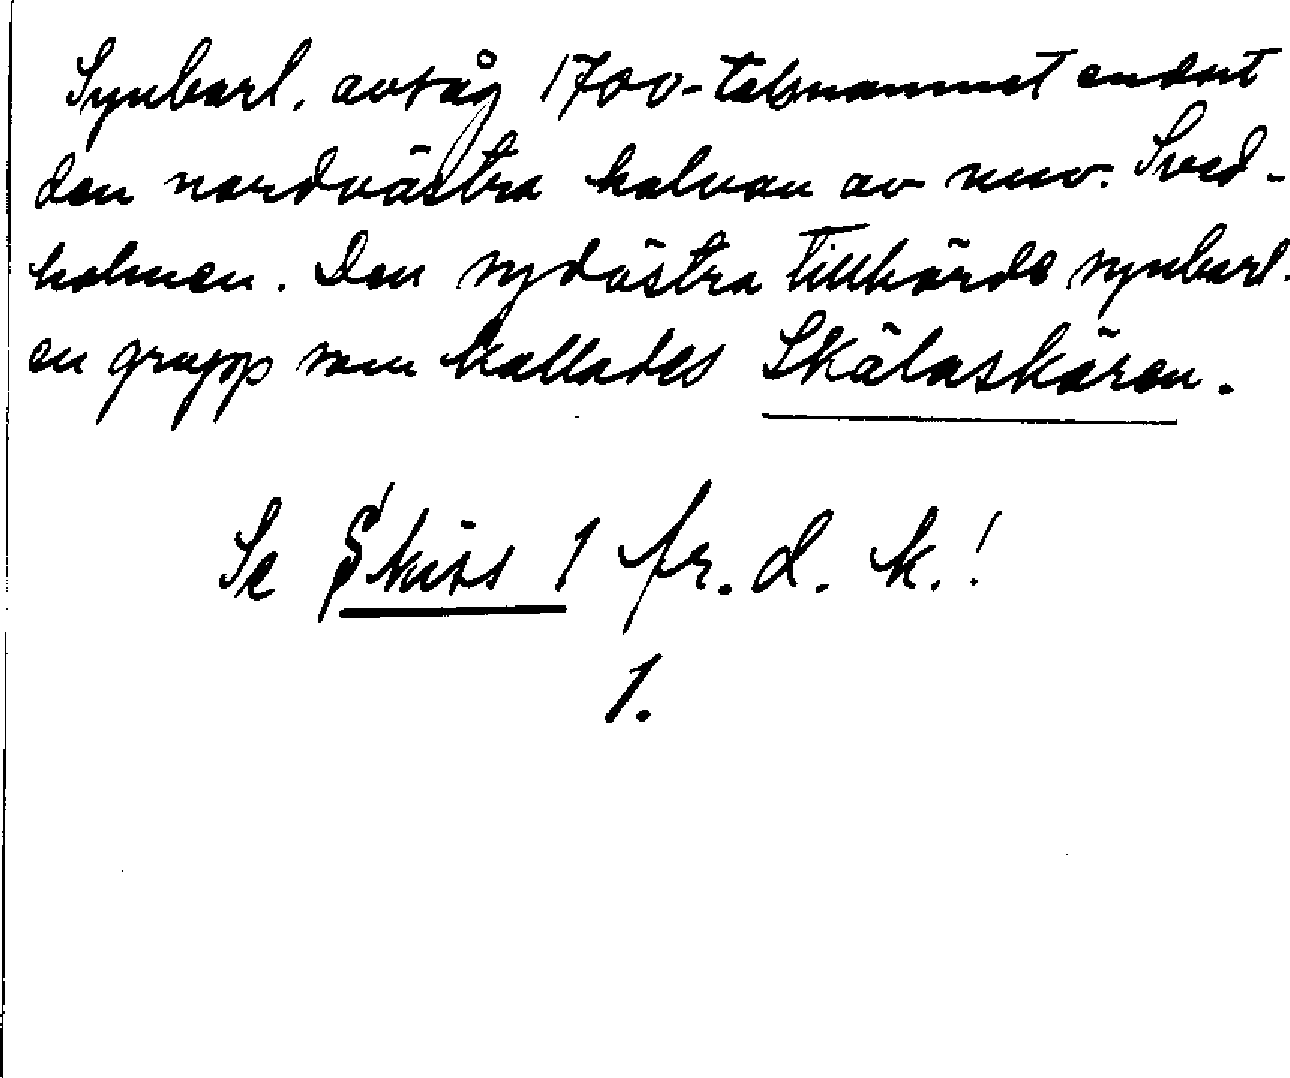 Synbarl. avsåg 1700-talsnamnet endast
den nordvästra halvan av nuv. Sved-
holmen. Den sydöstra tillhörde synbarl.
en grupp som kallades Skälaskären.
Se Skiss 1 fr. d. k.!
1.